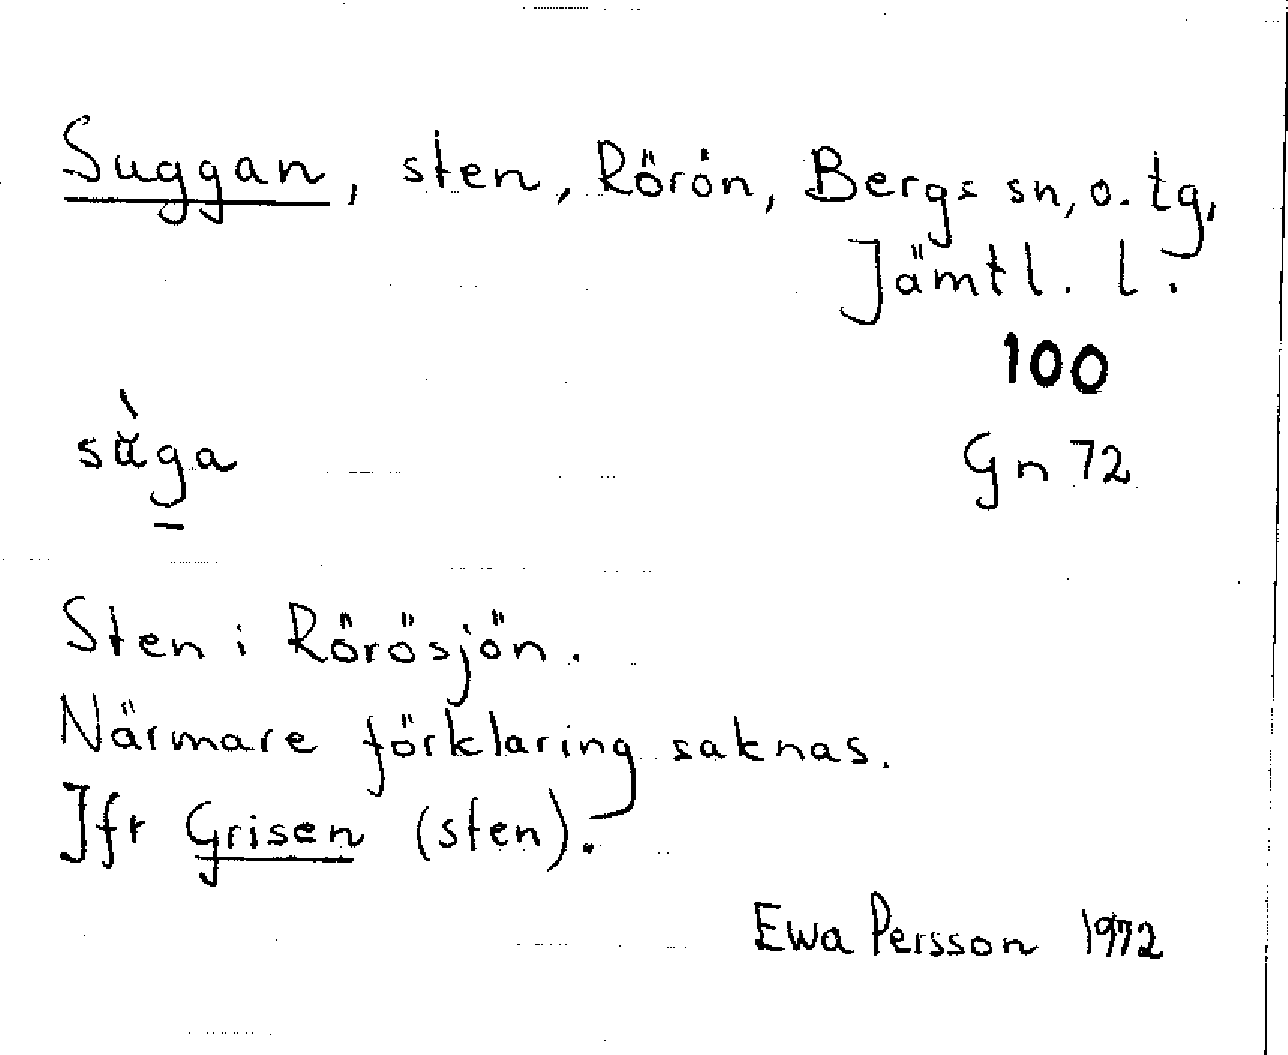 Suggan, sten, Rörön, Bergs sn, o. tg,
Jämtl. l.
100
sàga
Gn 72
Sten i Rörösjön.
Närmare förklaring saknas.
Jfr Grisen (sten).
Ewa Persson 1972